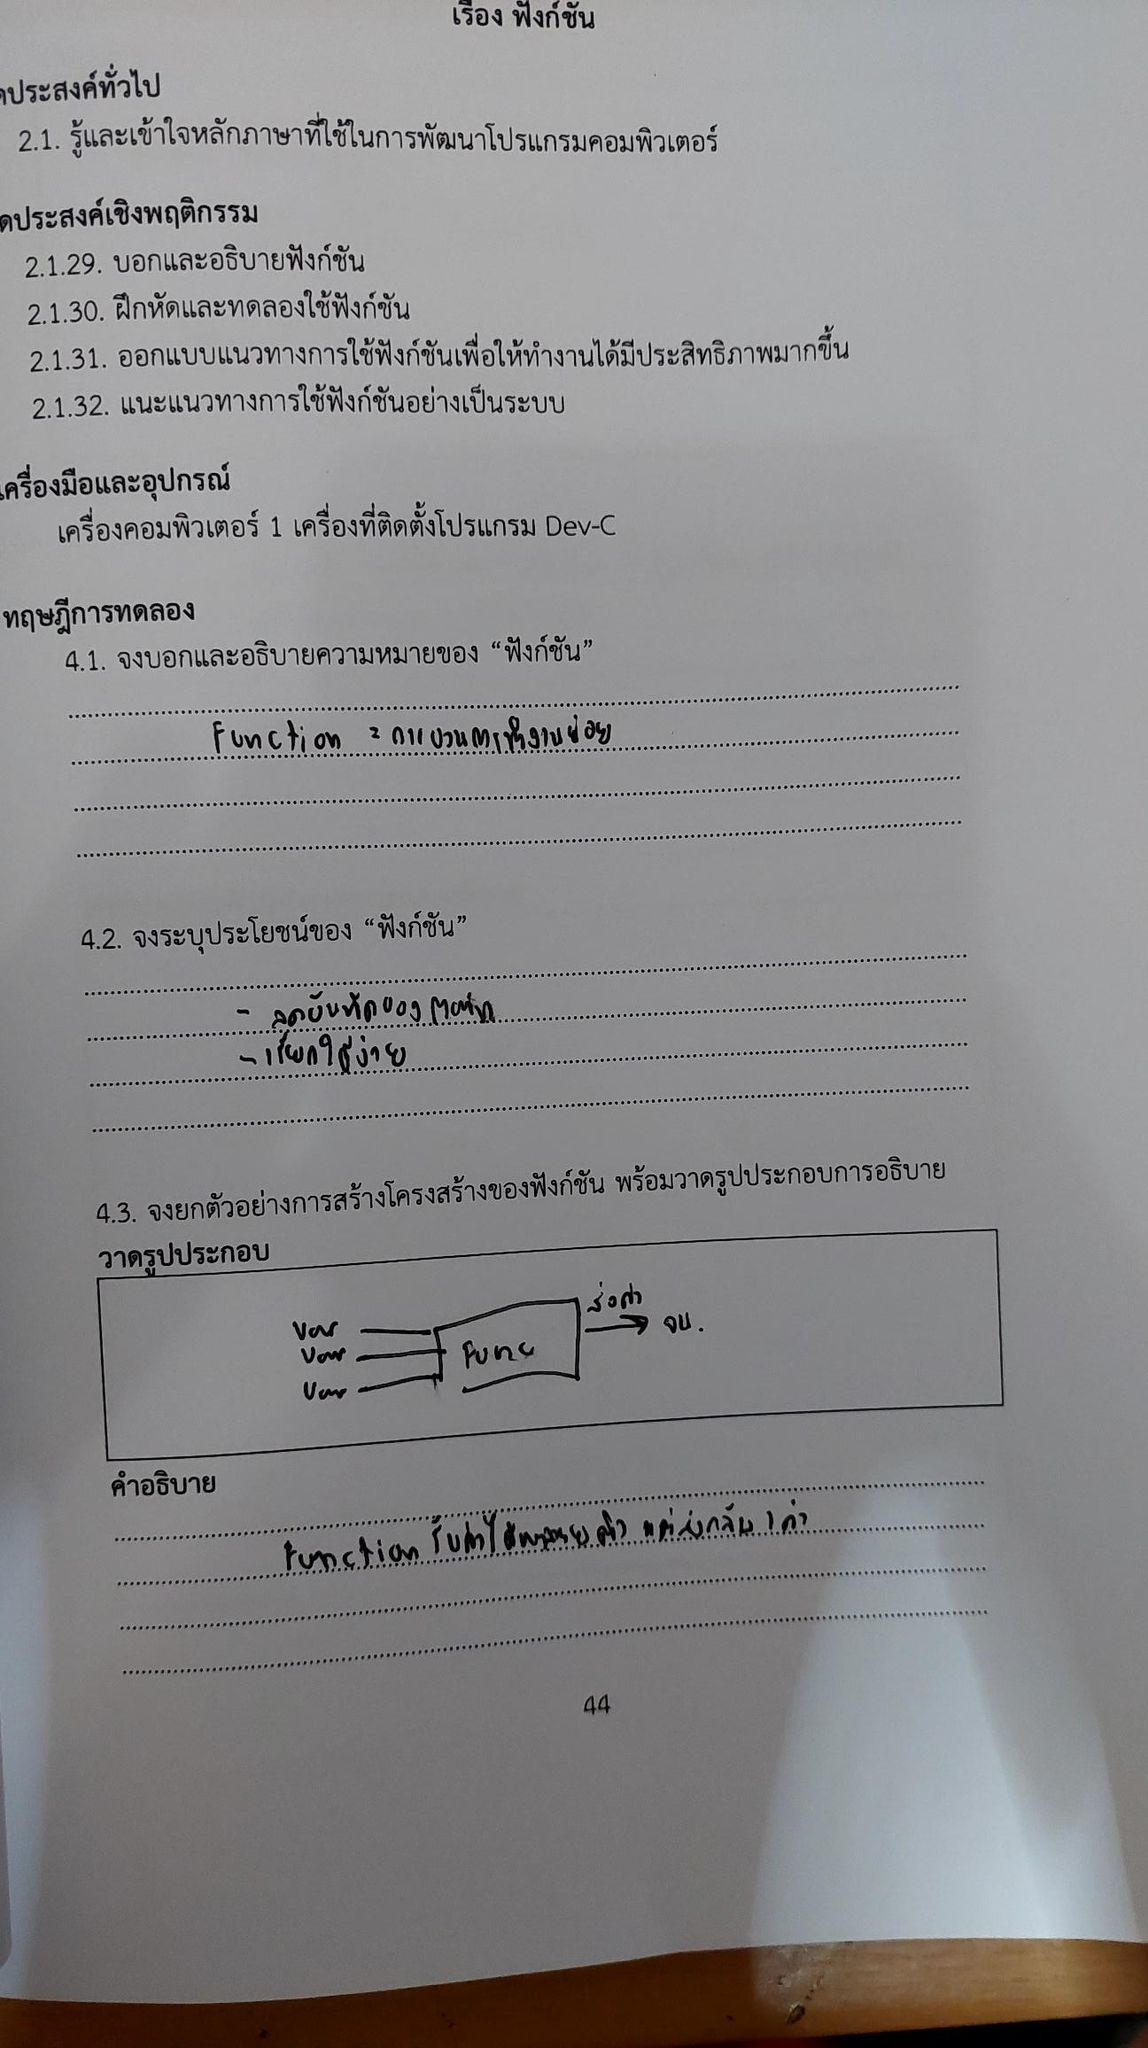 เรื่อง ฟังก์ชัน
ดประสงค์ทั่วไป
2.1. รู้และเข้าใจหลักภาษาที่ใช้ในการพัฒนาโปรแกรมคอมพิวเตอร์
ดประสงค์เชิงพฤติกรรม
2.1.29. บอกและอธิบายฟังก์ชัน
2.1.30. ฝึกหัดและทดลองใช้ฟังก์ชัน
2.1.31. ออกแบบแนวทางการใช้ฟังก์ชันเพื่อให้ทำงานได้มีประสิทธิภาพมากขึ้น
2.1.32. แนะแนวทางการใช้ฟังก์ชันอย่างเป็นระบบ
เครื่องมือและอุปกรณ์
เครื่องคอมพิวเตอร์ 1 เครื่องที่ติดตั้งโปรแกรม Dev-C
ทฤษฎีการทดลอง
4.1. จงบอกและอธิบายความหมายของ “ฟังก์ชัน”
Function = กระบวนการทำงานย่อย
4.2. จงระบุประโยชน์ของ “ฟังก์ชัน”
- ลดบันทัดของ main
- เรียกใช้ง่าย
4.3. จงยกตัวอย่างการสร้างโครงสร้างของฟังก์ชัน พร้อมวาดรูปประกอบการอธิบาย
วาดรูปประกอบ
var
var
var
Func
ส่งค่า
จบ.
คำอธิบาย
Function รับค่าได้หลายค่า แต่ส่งกลับ 1 ค่า
44